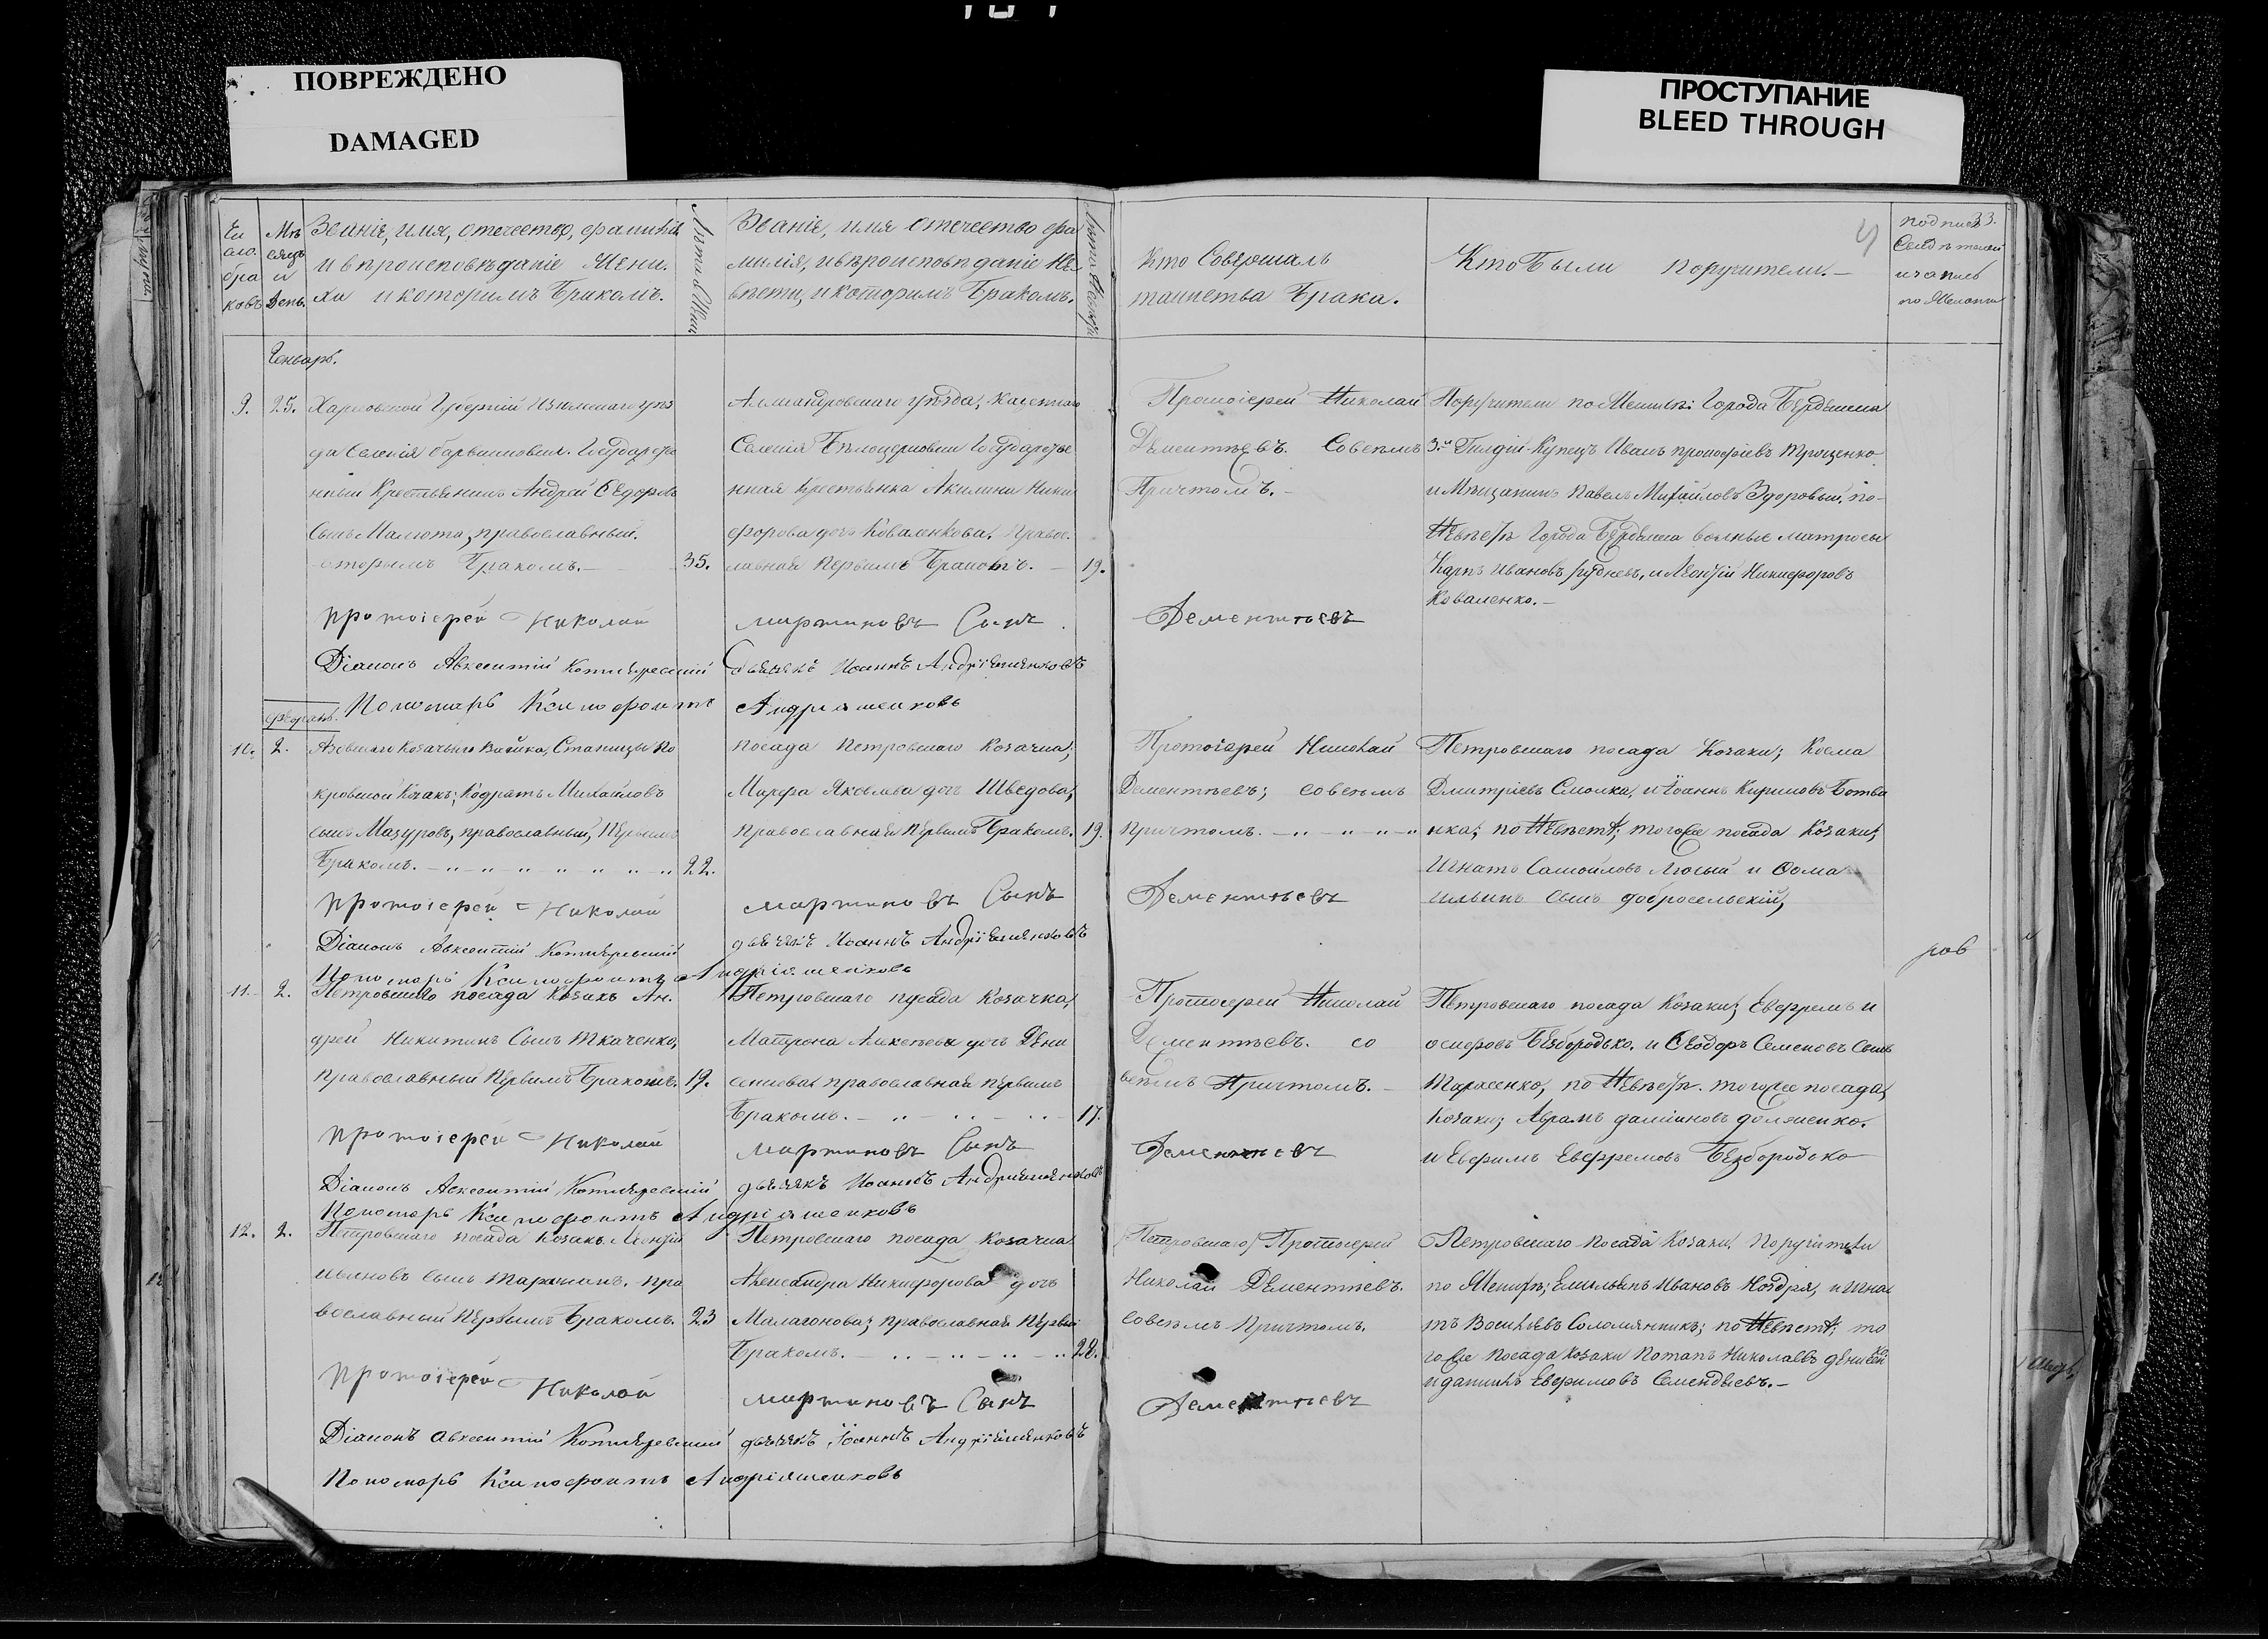 ПОВРЕЖДЕНО
DAMAGED
ПРОСТУПАНИЕ
BLEED THROUGH
33.
Чи
сло.
бра
ковъ
Мѣ
сяцъ
и
День.
Званіе, имя, отечество, фамилія
и вѣроисповѣданіе Жени
ха и которимъ Бракомъ.
Лѣта Жен.
Званіе, имя отечество фа
милія, и вѣроисповѣданіе Не
вѣсти, и которимъ Бракомъ.
Лѣта Невѣсты
Кто Совершалъ
таинства Брака.
Кто Были поручители.—
подпись
Свидѣтелей
и запись
по Желанію
Генварь.
9.
25.
Харковской Губерніи Изюмскаго уѣз
да Селенія барвинковки. Государстве
нный Крестьянинъ Андрей Ѳедоровъ
Сынъ Малюта, православный.
вторымъ Бракомъ.—
35.
Александровскаго уѣзда, казеннаго
Селенія Бѣлоцерковки Государстве
нная Крестьянка Акилина Ники
форова дочь Коваленкова. Правос
лавная Первымъ Бракомъ.—
19.
Протоіерей Николай
Дементьевъ. Совсемъ
Причтомъ.—
Поручители по Женихѣ: Города Бердянска
3й Гилдіи Купецъ Иванъ прокофіевъ Троценко
и Мѣщанинъ Павелъ Михайловъ Здоровый, по-
Невѣстѣ Города Бердянска вольные матросы
Карпъ Ивановъ Рудневъ, и Леонтій Никифоровъ
Коваленко.—
протоіерей Николай
мартиновъ Сынъ
Дементьевъ
Діаконъ Авксентій Котляревскій
дьячекъ Іоаннъ Андріяшенковъ
Пономарь Ксинофонтъ
Андріяшенковъ
февраль.
10.
2.
Азовскаго Козачьяго Войска, Станицы По
кровской Козакъ; Кодратъ Михайловъ
сынъ Мазуровъ, православный, Первымъ
Бракомъ.
22.
посада Петровскаго Козачка;
Марфа Яковлева дочь Шведова,
православная Первымъ Бракомъ.
19.
Протоіерей Николай
Дементьевъ; совсемъ
причтомъ.
Петровскаго посада Козаки; Косма
Дмитріевъ Смолка, и Іоаннъ Кириловъ Ботви
нка; по Невѣстѣ; тогоже посада Козаки;
Игнатъ Самойловъ Лысый и Ѳома
Ильинъ сынъ добросельскій,
протоіерей Николай
мартиновъ Сынъ
Дементьевъ
Діаконъ Авксентій Котляревскій
дьячекъ Іоаннъ Андріяшенковъ
ров
Пономарь Ксинофонтъ Андріяшенковъ
11.
2.
Петровскаго посада Козакъ Ан.
дрей Никитинъ Сынъ Ткаченко,
православный Первымъ Бракомъ.
19.
Петровскаго посада Козачка,
Матрона Алексѣева дочь Дени
сенкова православная первымъ
Бракомъ.
17.
Протоіерей Николай
Дементьевъ. со
всемъ Причтомъ.—
Петровскаго посада Козаки; Евфремъ и
осифовъ Безбородько. и Ѳеодоръ Семеновъ Сынъ
Тарасенко, по Невѣстѣ. тогоже посада,
Козаки; Аврамъ даміановъ долженко.
и Евфимъ Евфремовъ Безбородько
протоіерей Николай
мартиновъ Сынъ
Дементьевъ
Діаконъ Авксентій Котляревскій
дьячекъ Іоаннъ Андріяшенковъ
Пономарь Ксинофонтъ Андріяшенковъ
12.
2.
Петровскаго посада Козакъ Леонтій
сынъ пра
вославный Первымъ Бракомъ.
23
Петровскаго посада Козачка
Александра Никифорова дочь
Малахонова; православная Первы
Бракомъ.
22.
(Петровскаго) Протоіерей
Николай Дементьевъ.
Совсемъ Причтомъ.
Петровскаго посада Козаки. Поручители
по Женихѣ; Емильянъ Ивановъ Ноздря, и Игна
тъ Васильевъ Соломянникъ; по Невѣстѣ; то
гоже посада козаки Потапъ Николаевъ
и данилъ Евфимовъ Семендяевъ.—
протоіерей Николай
мартиновъ Сынъ
Дементьевъ
Діаконъ Авксентій Котляревскій
дьячекъ Іоаннъ Андріяшенковъ
Пономарь Ксинофонтъ Андріяшенковъ